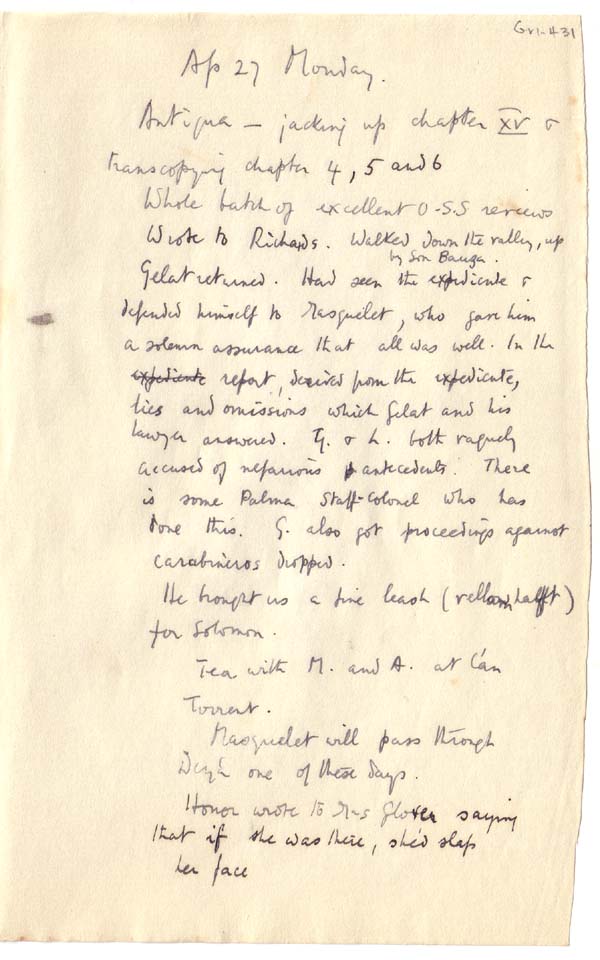 Gv1-431
Ap 27 Monday.
Antigua — jacking up chapter XV &
transcopying chapter 4, 5 and 6
Whole batch of excellent O-S.S reviews
Wrote to Richards. Walked down the valley, up
by Son Bauza.
Gelat returned. Had seen the expediente &
defended himself to Masquelet, who gave him
a solemn assurance that all was well. In the
expediente report, derived from the expediente,
lies and omissions which Gelat and his
lawyer answered. G. & L. both vaguely
accused of nefarious antecedents. There
is some Palma Staff-Colonel who has
done this. G. also got proceedings against
carabineros dropped.
He brought us a fine leash
for Solomon.
Tea with M. and A. at C'an
Torrent.
Masquelet will pass through
Deyá one of these days.
Honor wrote to Mrs Glover saying
that if she was there, she'd slap
her face